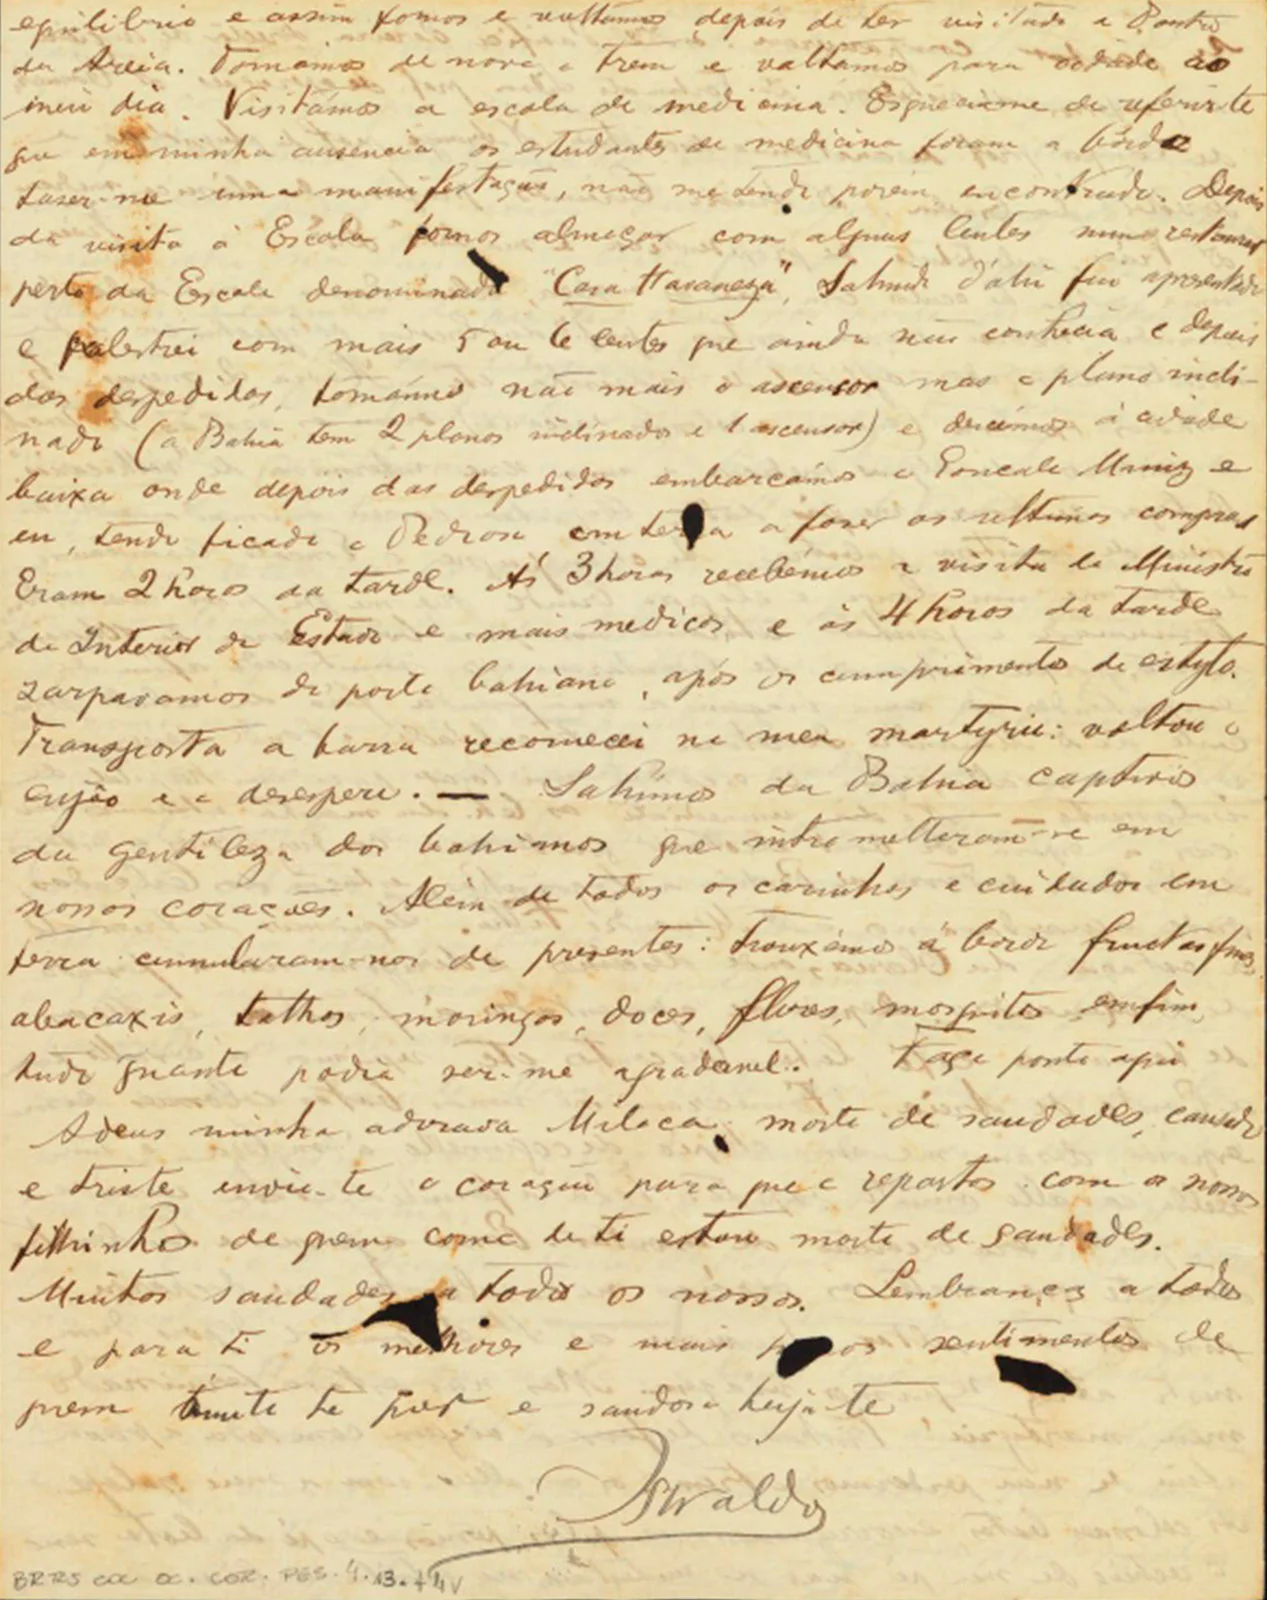 equilibrio e assim fomos e voltámos depois de ter visitado a Ponta
da Areia. Tomámos de novo o trem e voltamos para cidade ao
meio dia. Visitámos a escola de medicina. Esqueciame de referir-te
que em minha ausencia os estudantes de medicina foram a bordo
fazer-me uma manifestação, não me tendo porém encontrado. Depois
da visita á Escola fomos almoçar com alguns lentes num restaurant
perto da Escola denominado "Casa Havaneza", Sahindo d'ahi fui apresentado
e palestrei com mais 5 ou 6 lentes que ainda não conhecia e depois
das despedidas, tomámos não mais o ascensor mas o plano incli-
nado (a Bahia tem 2 planos inclinados e 1 ascensor) e descemos á cidade
baixa onde depois das despedidas embarcámos o Goncalo Muniz e
eu, tendo ficado o Pedroso em terra a fazer as ultimas compras
Eram 2 horas da tarde. Ás 3 horas recebémos a visita do Ministro
do Interior do Estado e mais medicos e ás 4 horas da tarde
zarpavamos do porto bahiano, após os cumprimentos de estylo.
Transposta a barra recomecei no meu martyrio: voltou o
enjôo e o desespero. — Sahimos da Bahia captivos
da gentileza dos bahianos que intrometteram-se em
nossos corações. Alem de todos os carinhos e cuidados em
terra cumularam-nos de presentes: trouxémos á bordo fructas finas,
abacaxis, talhos, moringas, doces, flores, mosquitos emfim,
tudo quanto podia ser-me agradavel. Faço ponto aqui
Adeus minha adorada Miloca morto de saudades, cansado
e triste envio-te o coração para que o repartas com os nossos
filhinhos de quem como de ti estou morto de saudades.
Muitas saudades a todos os nossos. Lembranças a todos
e para ti os melhores e mais puros sentimentos de
quem te e saudoso beija-te
Oswaldo
BR RJ COC OC. COR. PES. 4. 13. +4v